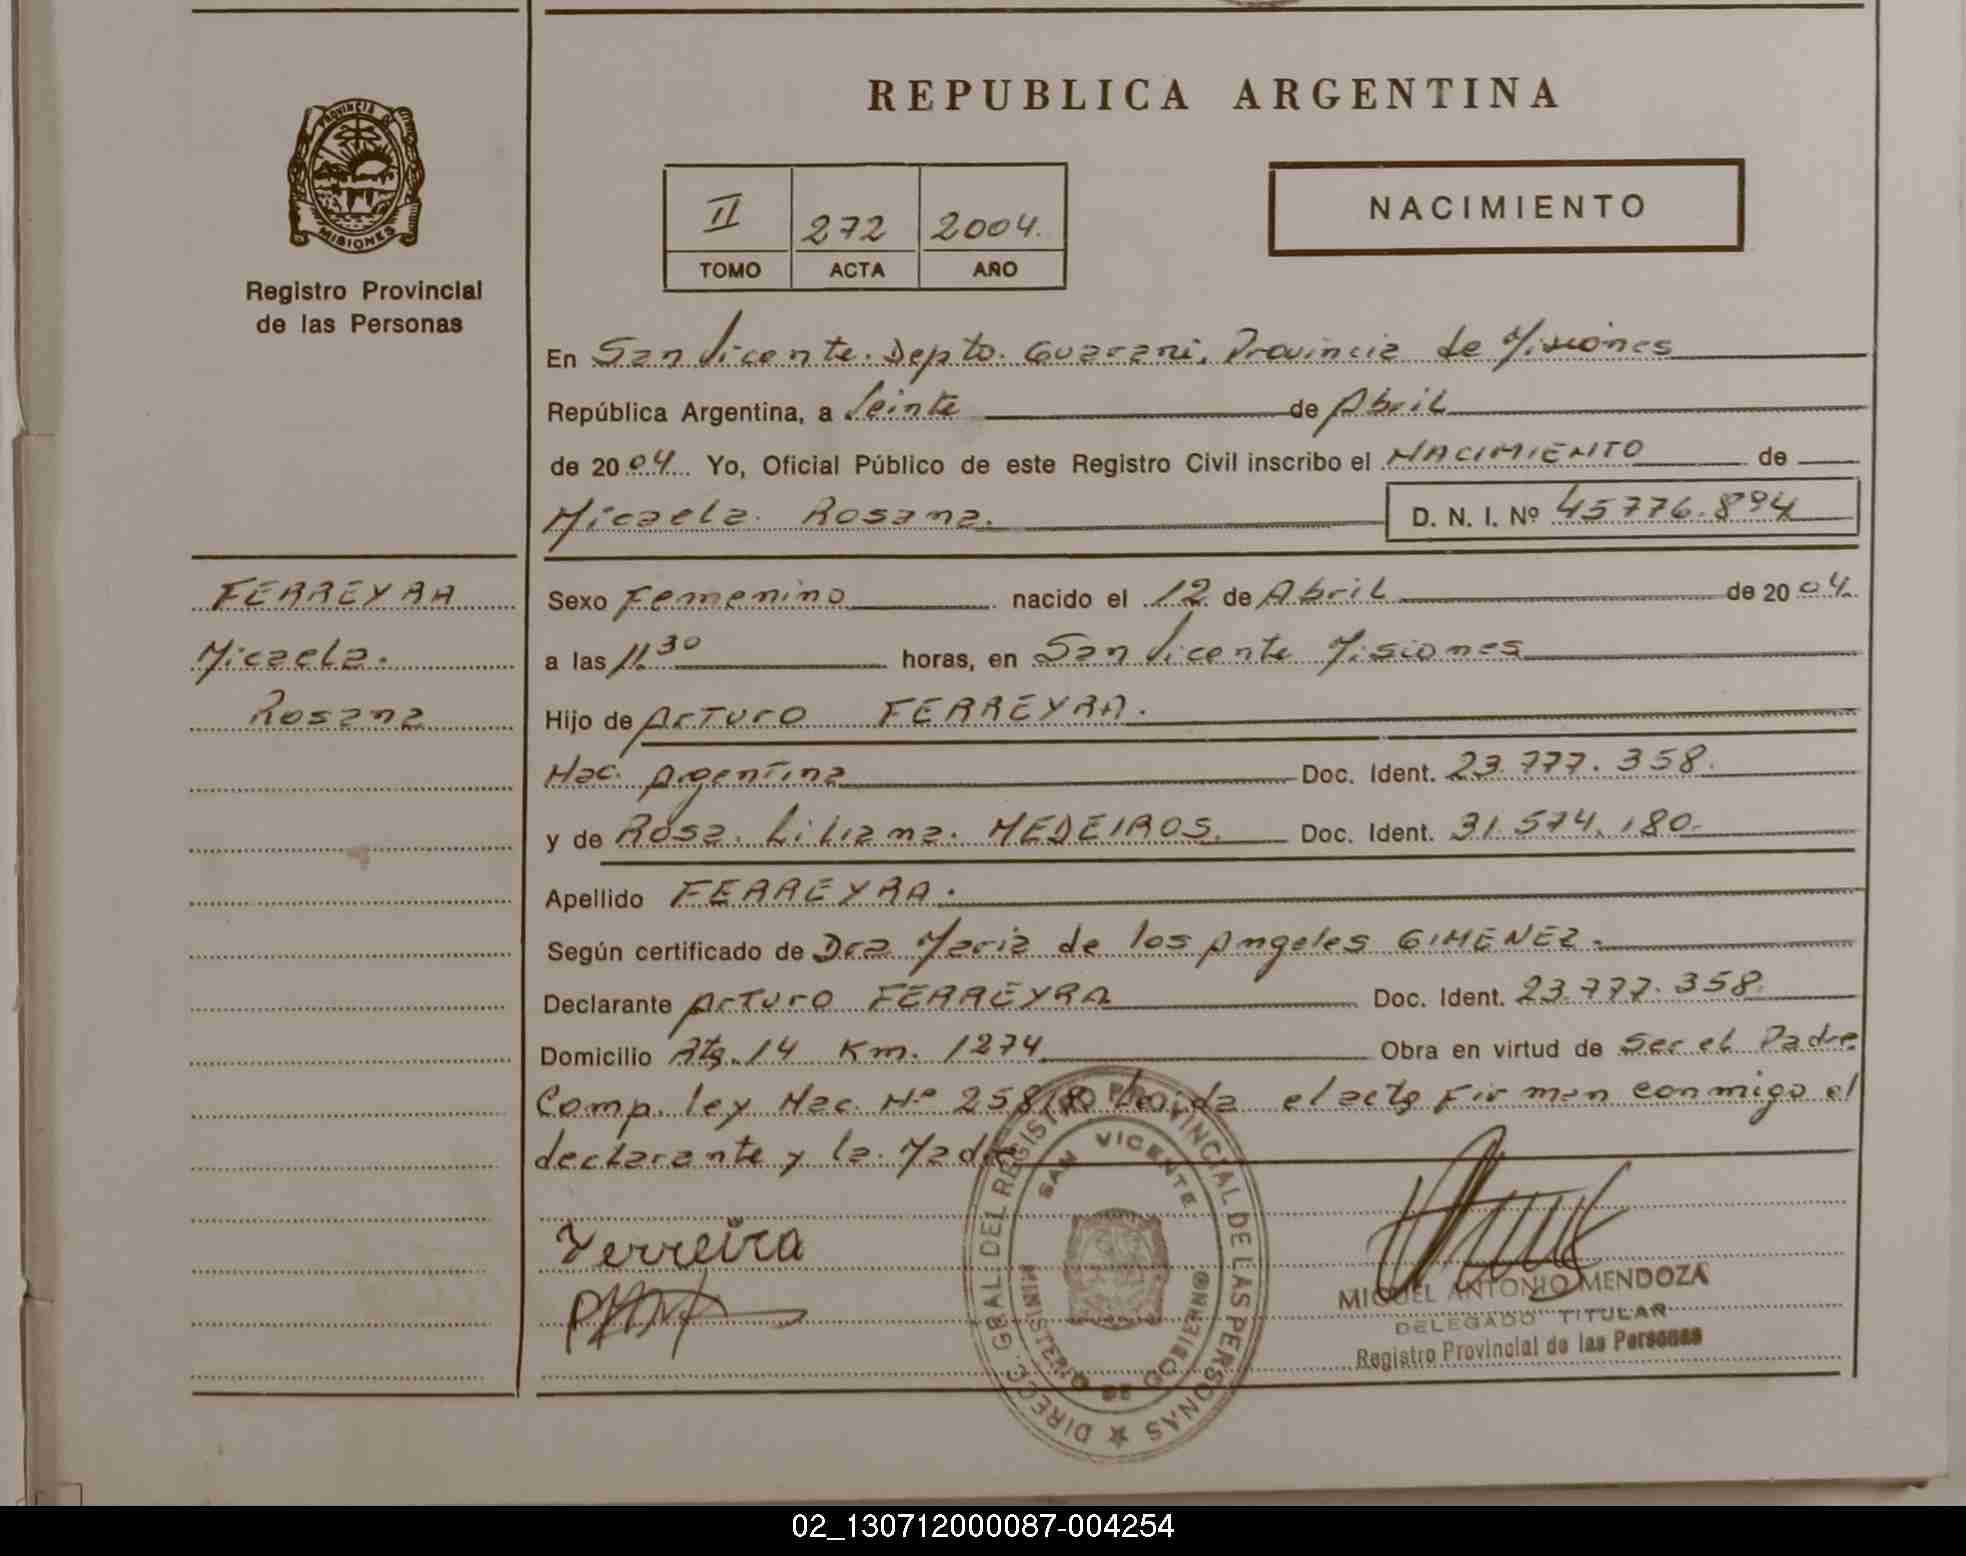 PROVINCIA DE
MISIONES
Registro Provincial
de las Personas
REPUBLICA ARGENTINA
II 272 2004.
TOMO ACTA AÑO
NACIMIENTO
En San Vicente. Depto. Guarani. Provincia de Misiones
República Argentina, a Veinte de Abril
de 2004. Yo, Oficial Público de este Registro Civil inscribo el NACIMIENTO de
Micaela. Rosana.
D. N. I. Nº 45776.894
FERREYRA
Micaela.
Rosana
Sexo Femenino nacido el 12 de Abril de 2004.
a las 11.30 horas, en San Vicente Misiones
Hijo de Arturo FERREYRA.
Nac. Argentina Doc. Ident. 23.777.358.
y de Rosa. Liliana. MEDEIROS. Doc. Ident. 31.574.180.
Apellido FERREYRA.
Según certificado de Dra Maria de los Angeles GIMENEZ.
Declarante Arturo FERREYRA Doc. Ident. 23.777.358.
Domicilio Rta. 14 Km. 1274 Obra en virtud de Ser el Padre
Comp. ley Nac. Nº Leida el acta Firman conmigo el
declarante y la Madre
Ferreira
DIRECC. GRAL DEL REGISTRO PROVINCIAL DE LAS PERSONAS
SAN VICENTE
MINISTERIO DE GOBIERNO
MIGUEL ANTONIO MENDOZA
DELEGADO TITULAR
Registro Provincial de las Personas
02_130712000087-004254